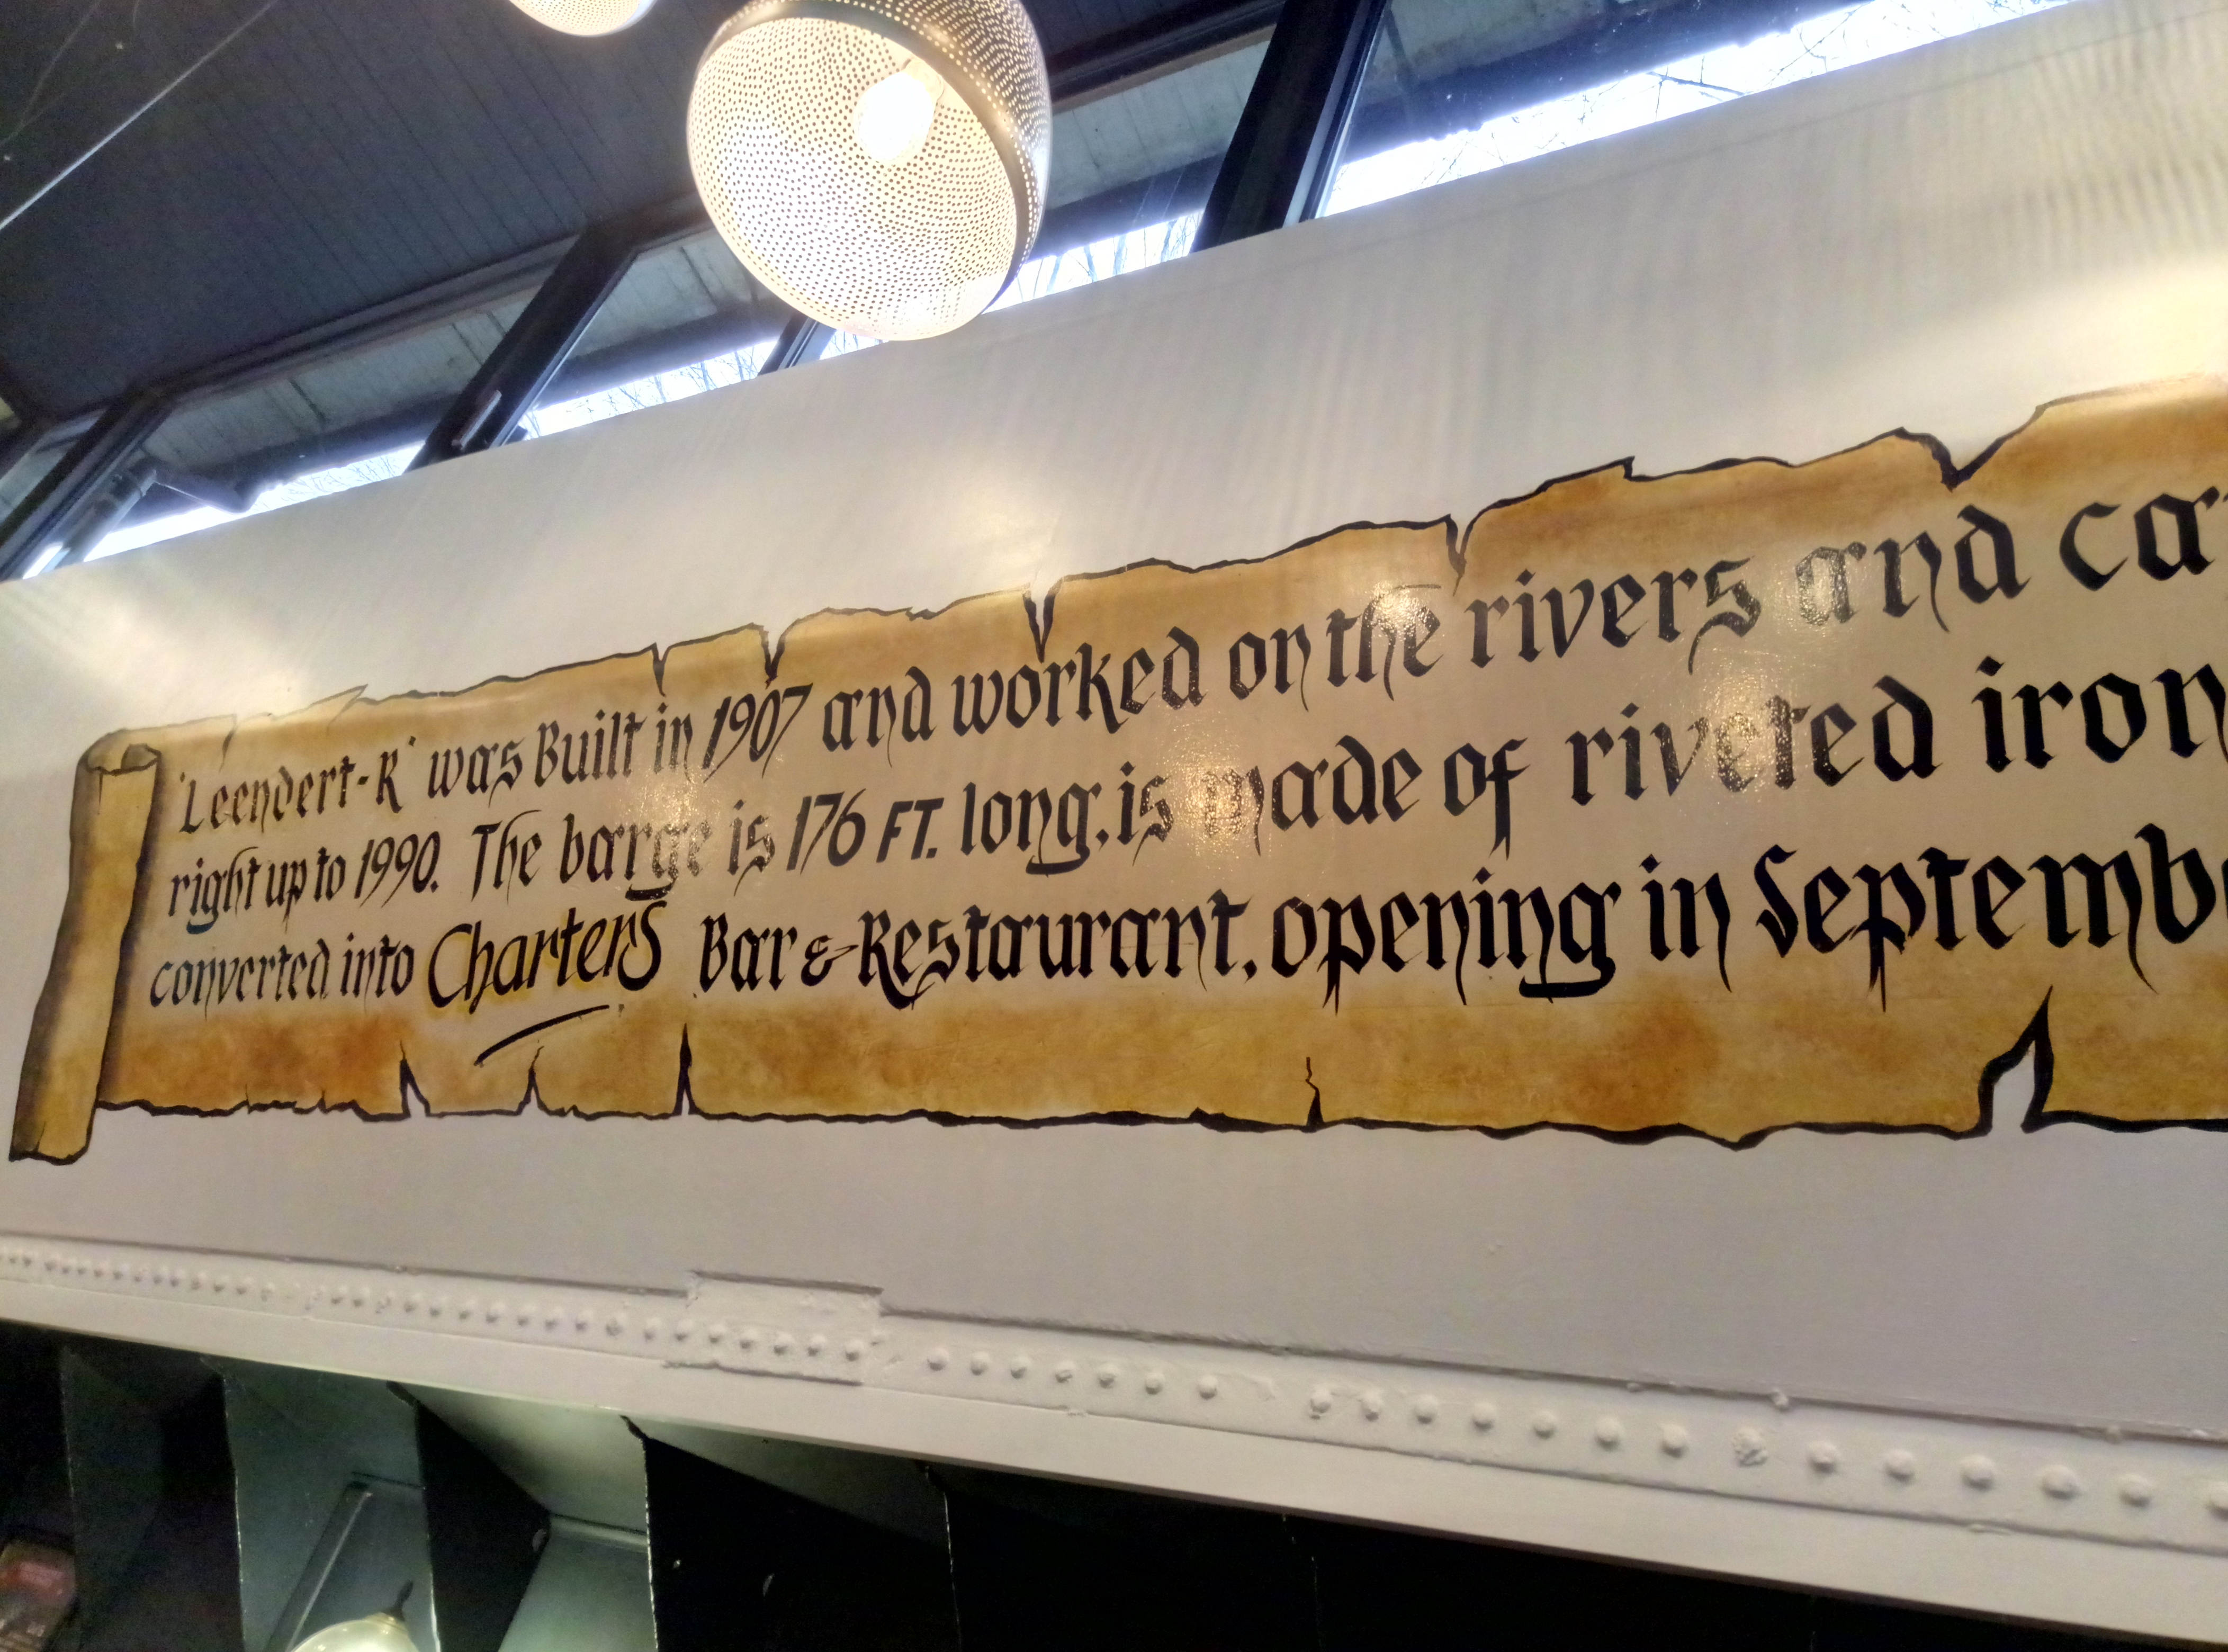 'Leendert-R' was Built in 1907 and worked on the rivers and ca
right up to 1990. The barge is 176 FT. long, is made of riveted iron
converted into Charters Bar & Restaurant, opening in Septembe